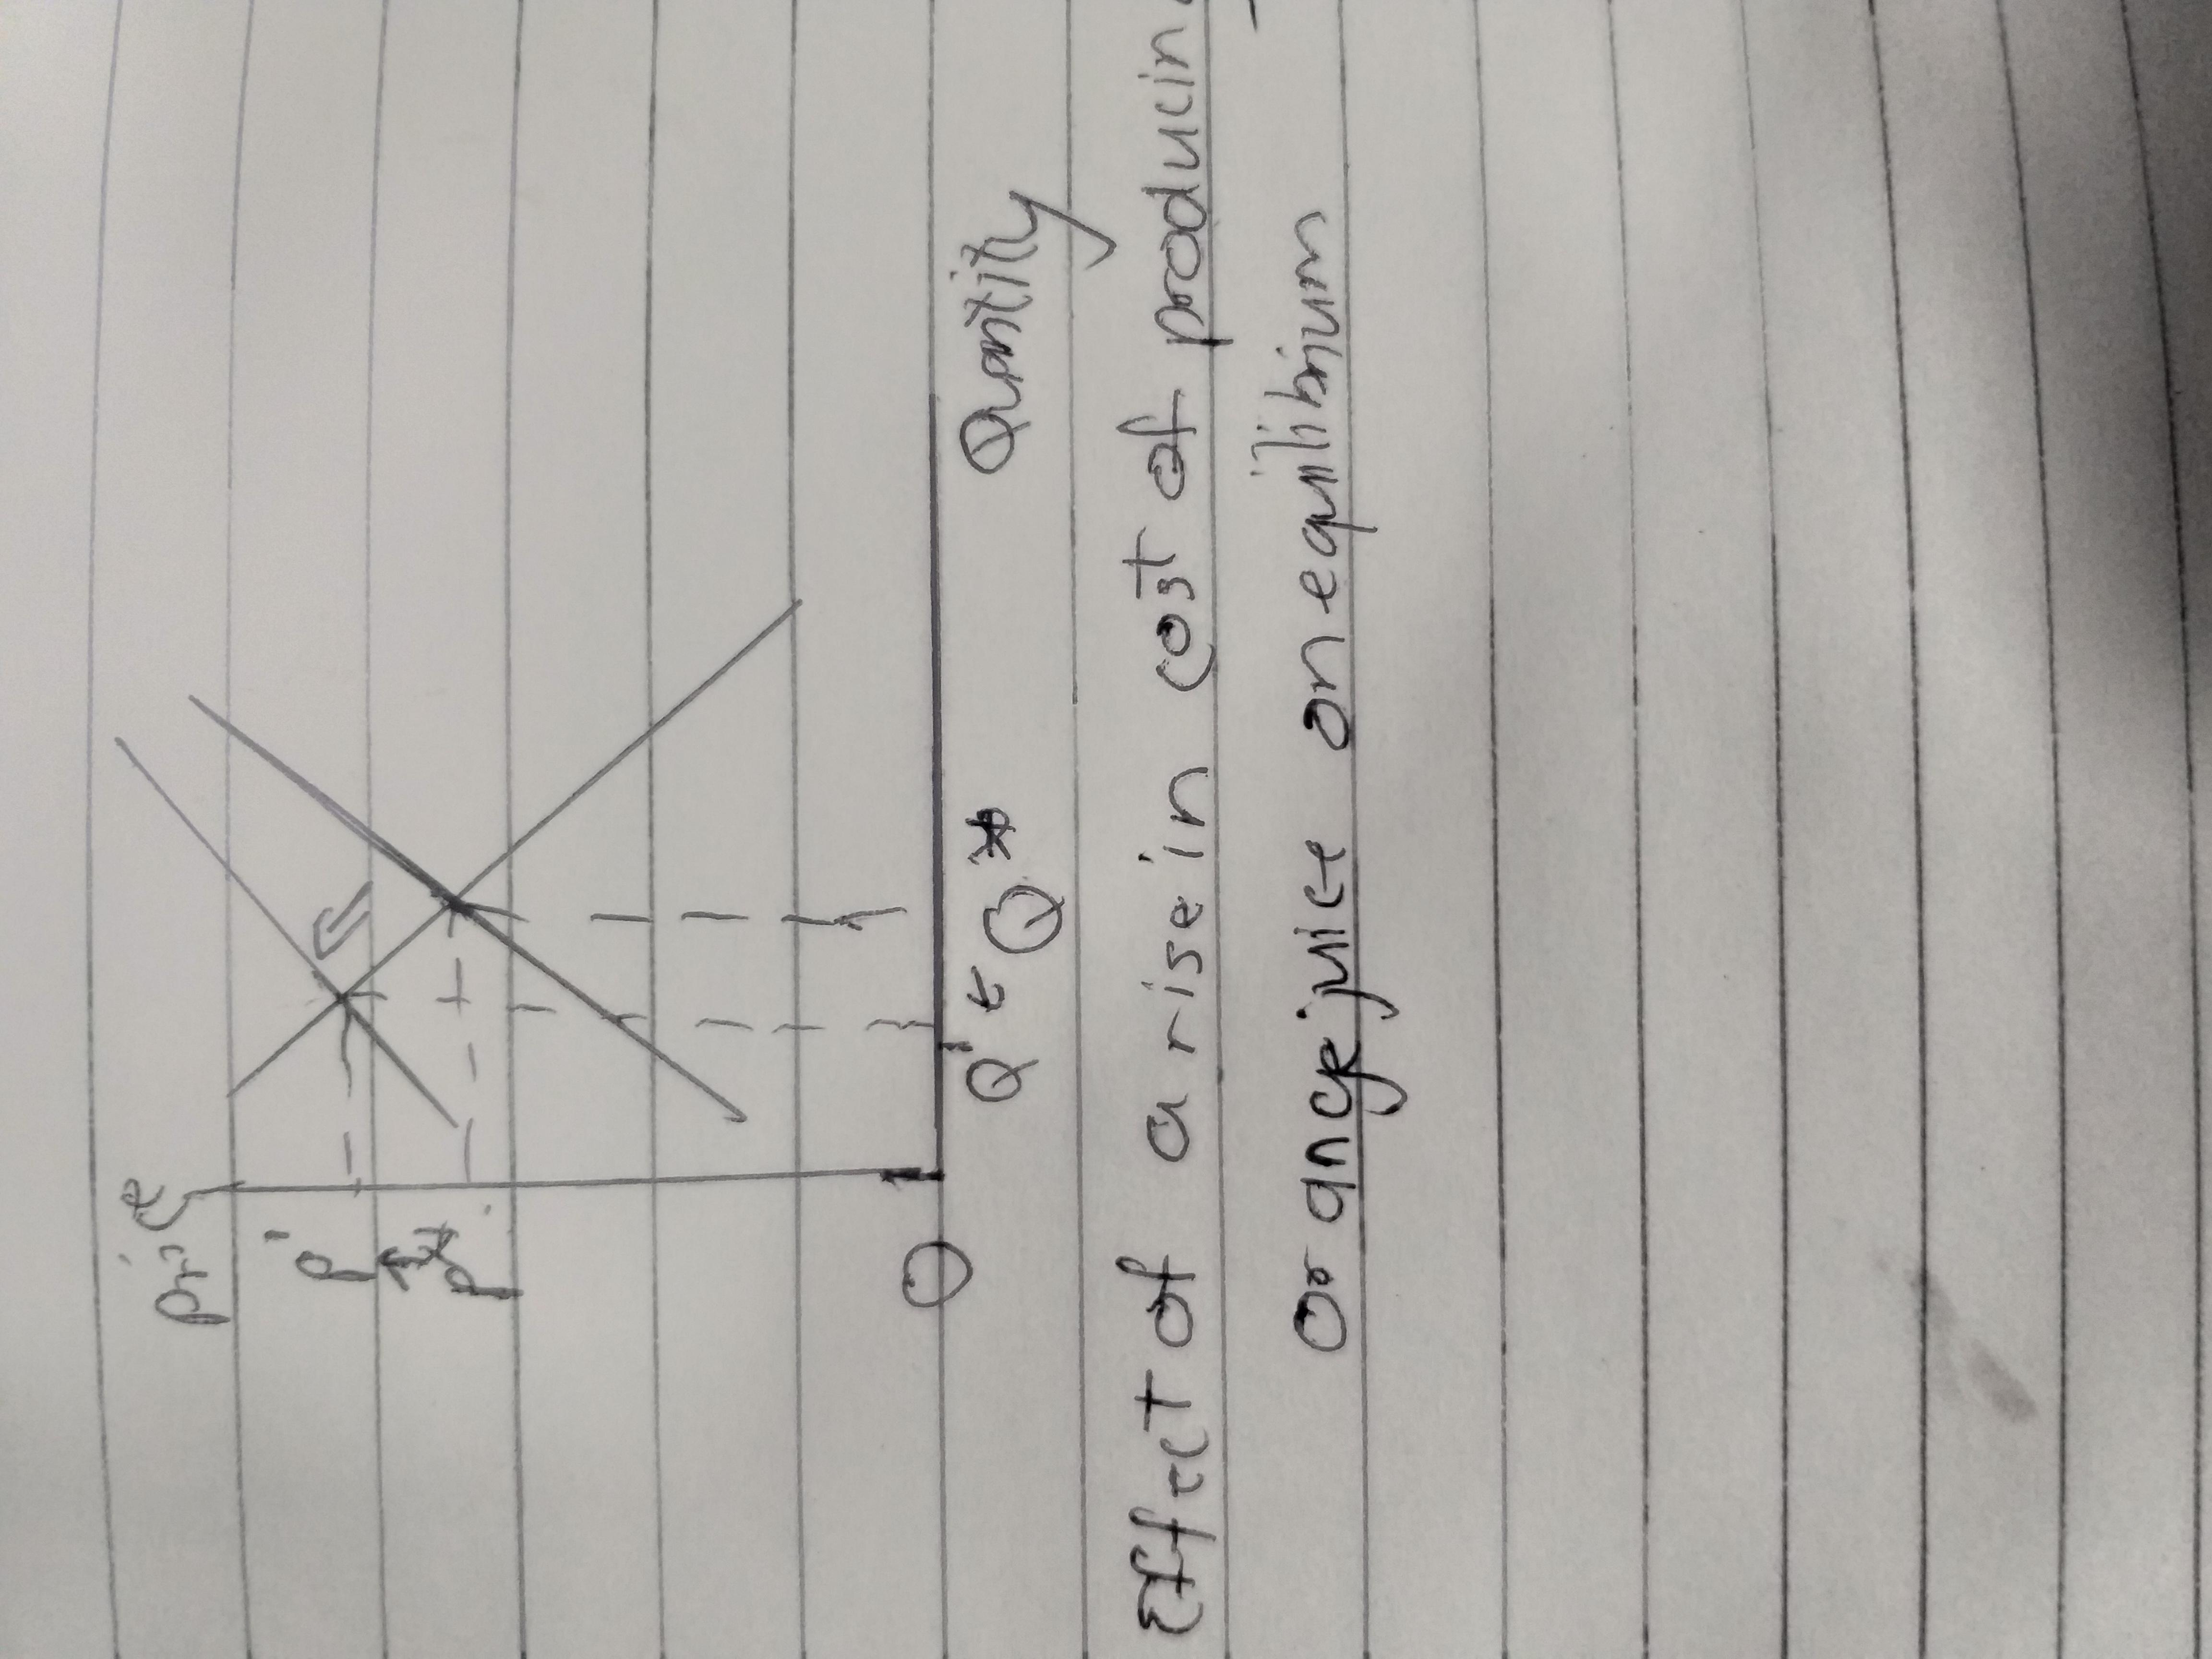 price
p'
p*
O
Q' ← Q*
Quantity
Effect of a rise in cost of producin
orange juice on equilibrium